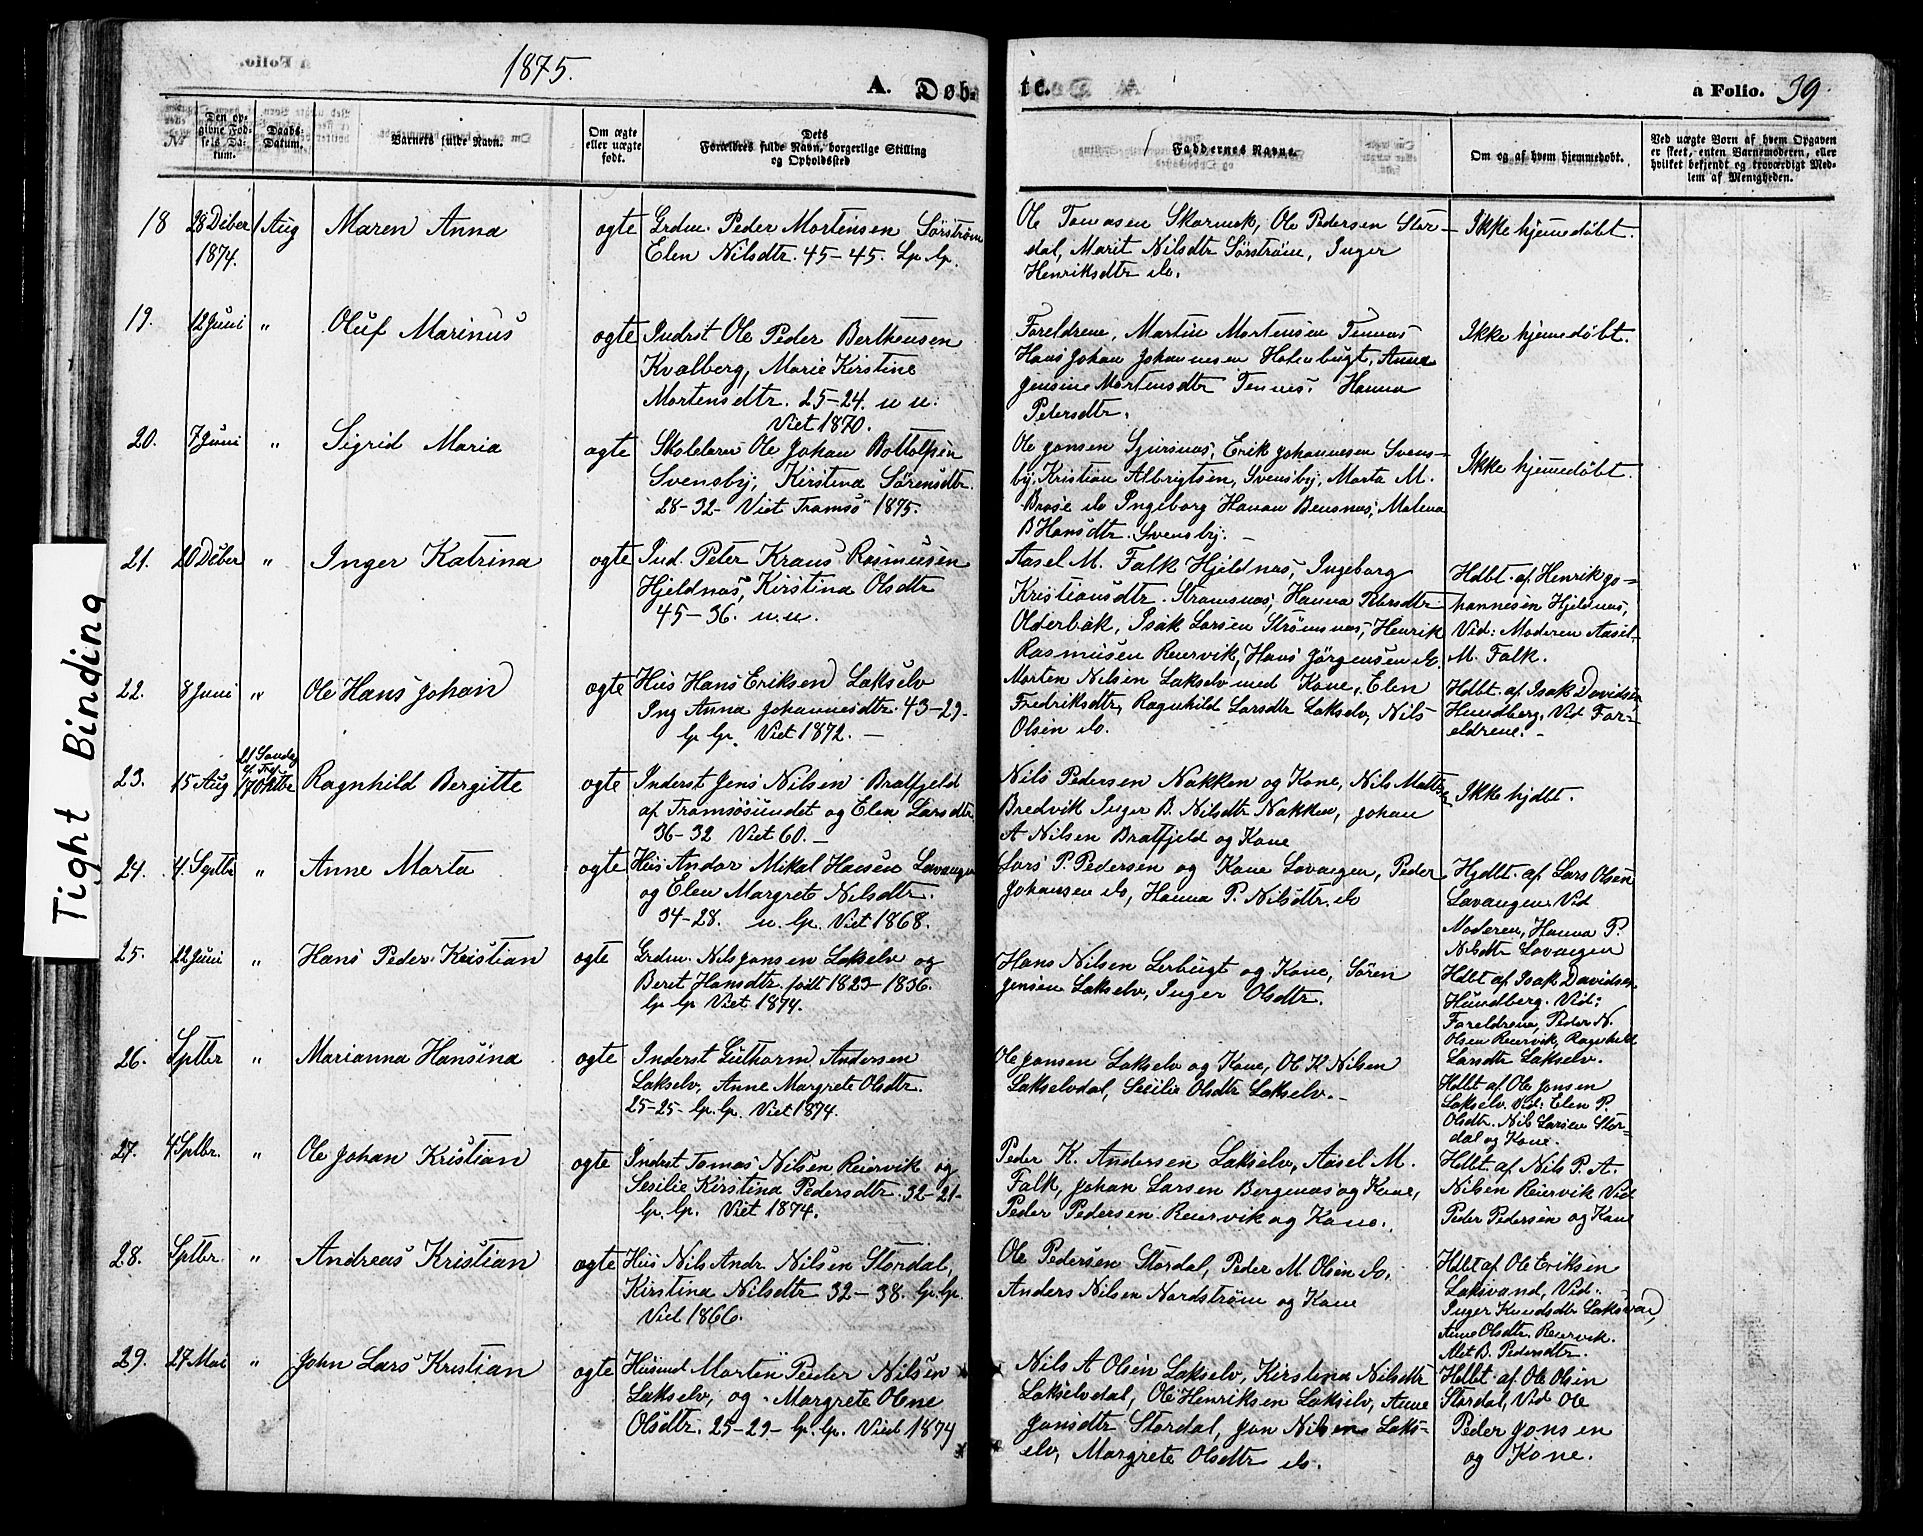 1875.
A. Døb-
te.
a Folio. 39
Tight Binding
No
Den op-
givne Fød-
sels Da-
tum.
Daabs-
Datum.
Barnets fulde Navn.
Om ægte
eller uægte
født.
Dets
Forældres fulde Navn, borgerlige Stilling
og Opholdssted
Faddernes Navne.
Om og af hvem hjemmedøbt.
Ved uægte Børn af hvem Opgaven
er skeet, enten Barnemoderen, eller
hvilket bekjendt og troværdigt Med-
lem af Menigheden.
18 28 Dcber 1 Aug Maren Anna ogte Grdm. Peder Mortensen Sørstrøm
1874. Elen Nilsdtr. 45-45. Lp. lp.
Ole Tomasen Skarmok, Ole Pedersen Stor-
dal, Marit Nilsdtr Sørstrøm, Inger
Henriksdtr do.
Ikke hjemedøbt.
19. 12 Juni " Oluf Marinus ogte Inderst Ole Peder Bertheusen
Kvalberg, Marie Kirstine
Mortensdtr. 25-24. n n.
Viet 1870.
Foreldrene, Martin Mortensen Tennes
Hans Johan Johannesen Holmbugt, Anne
Jensine Mortensdtr Tennes. Hanna
Petersdtr.
Ikke hjemedøbt.
20. 7 Juni " Sigrid Maria ogte Skolelærer Ole Johan Bottolfsen
Svensby, Kirstina Sørensdtr.
28-32- Viet Tromsö 1875.
Ole Jonsen Sjursnæs, Erik Johannesen Svens-
by, Kristian Albrigtsen, Svensby, Marta M.
Brose do Ingeborg Hanan Bensnæs, Malena
B Hansdtr. Svensby. -
Ikke hjemedøbt.
21. 20 Dcber " Inger Katrina ogte Ind. Peter Kraus Rasmusen
Hjeldnæs, Kirstina Olsdtr
45-36. n. n.
Aasel M. Falk Hjeldnæs, Ingeborg
Kristiansdtr. Strømsnæs, Hanna Petersdtr
Olderbak, Isak Larsen Strømsnæs, Henrik
Rasmusen Reiervik, Hans Jörgensen do.
Hdbt. af Henrik Jo-
hannesen Hjeldnæs,
Vid: Moderen Aasel
M. Falk.
22. 8 Juni " Ole Hans Johan ogte Hus Hans Eriksen Lakselv
Ing Anna Johannesdtr. 43-29-
lp lp. Viet 1872. -
Morten Nilsen Lakselv med Kone, Elen
Fredriksdtr, Ragnhild Larsdtr Lakselv, Nils
Olsen do.
Hdbt. af Isak Davidsen
Hundberg, Vid For-
eldrene. -
23. 15 Aug 21 Søndag
e. Tref
17 Oktbr Ragnhild Bergitte ogte Inderst Jens Nilsen Bratfjeld
af Tromsøsundet og Elen Larsdtr.
36-32 Viet 60. -
Nils Pedersen Nakken og Kone, Nils Matt
Bredvik Inger B. Nilsdtr Nakken, Johan
A Nilsen Bratfjeld og Kone
Ikke hjdbt.
24. 4. Septbr " Anne Marta ogte Hus Andor Mikal Hansen Lavangen
og Elen Margrete Nilsdtr.
34-28. n. lp. Viet 1868.
Lars P. Pedersen og Kone Lavangen, Peder
Johansen do, Hanna P. Nilsdtr. do
Hjdbt. af Lars Olsen
Lavangen. Vid
Moderen, Hanna P.
Nilsdtr Lavangen
25. 22 Juni " Hans Peder Kristian ogte Grdm. Nils Jonsen Lakselv og
Beret Hansdtr. født 1823-1836.
lp lp Viet 1874.
Hans Nilsen Lerbugt og Kone, Sören
Jensen Lakselv, Inger Olsdtr.
Hdbt af Isak Davidsen
Hundberg. Vid:
Foreldrene, Peder N.
Olsen Reiervik, Ragnhild
Larsdtr Lakselv.
26. Sptbr " Marianna Hansina ogte Inderst Guttorm Andersen
Lakselv, Anne Margrete Olsdtr.
25-25- lp. lp. Viet 1874.
Ole Jonsen Lakselv og Kone, Ole K Nilsen
Lakselvdal, Sesilie Olsdtr Lakselv. -
Hdbt af Ole Jonsen
Lakselv. Vid: Elen P.
Olsdtr. Nils Larsen Stor-
dal og Kone.
27. 4 Sptbr. " Ole Johan Kristian ogte Inderst Tomas Nilsen Reiervik og
Sesilie Kirstina Pedersdtr. 32-21-
lp. lp. Viet 1874.
Peder K. Andersen Lakselv, Aasel M.
Falk, Johan Larsen Bergenæs og Kone,
Peder Pedersen Reiervik og Kone.
Hdbt. af Nils P. A.
Nilsen Reiervik Vid
Peder Pedersen og Kone
28. Sptbr. " Andreas Kristian ogte Hus Nils Andr Nilsen Stordal,
Kirstina Nilsdtr 32-38. lp. lp.
Viet 1866.
Ole Pedersen Stordal, Peder M. Olsen do,
Anders Nilsen Nordstrøm og Kone
Hdbt af Ole Eriksen
Laksvand, Vid:
Inger Knudsdtr Laksvand,
Anne Olsdtr. Reiervik.
Alet B. Pedersdtr.
29. 27 Mai " John Lars Kristian ogte Husmd Morten Peder Nilsen
Lakselv, og Margrete Olene
Olsdtr. 25-29- lp. lp. Viet 1874
Nils A Olsen Lakselv, Kirstina Nilsdtr
Lakselvdal, Ole Henriksen Lakselv, Anne
Jonsdtr Stordal, Jon Nilsen Laks-
elv, Margrete Olsdtr do.
Hdbt. af Ole Olsen
Stordal, Vid Ole
Peder Jonsen
og Kone.